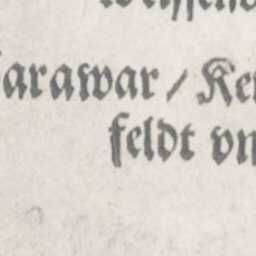 arawar / Ke
feldt vn